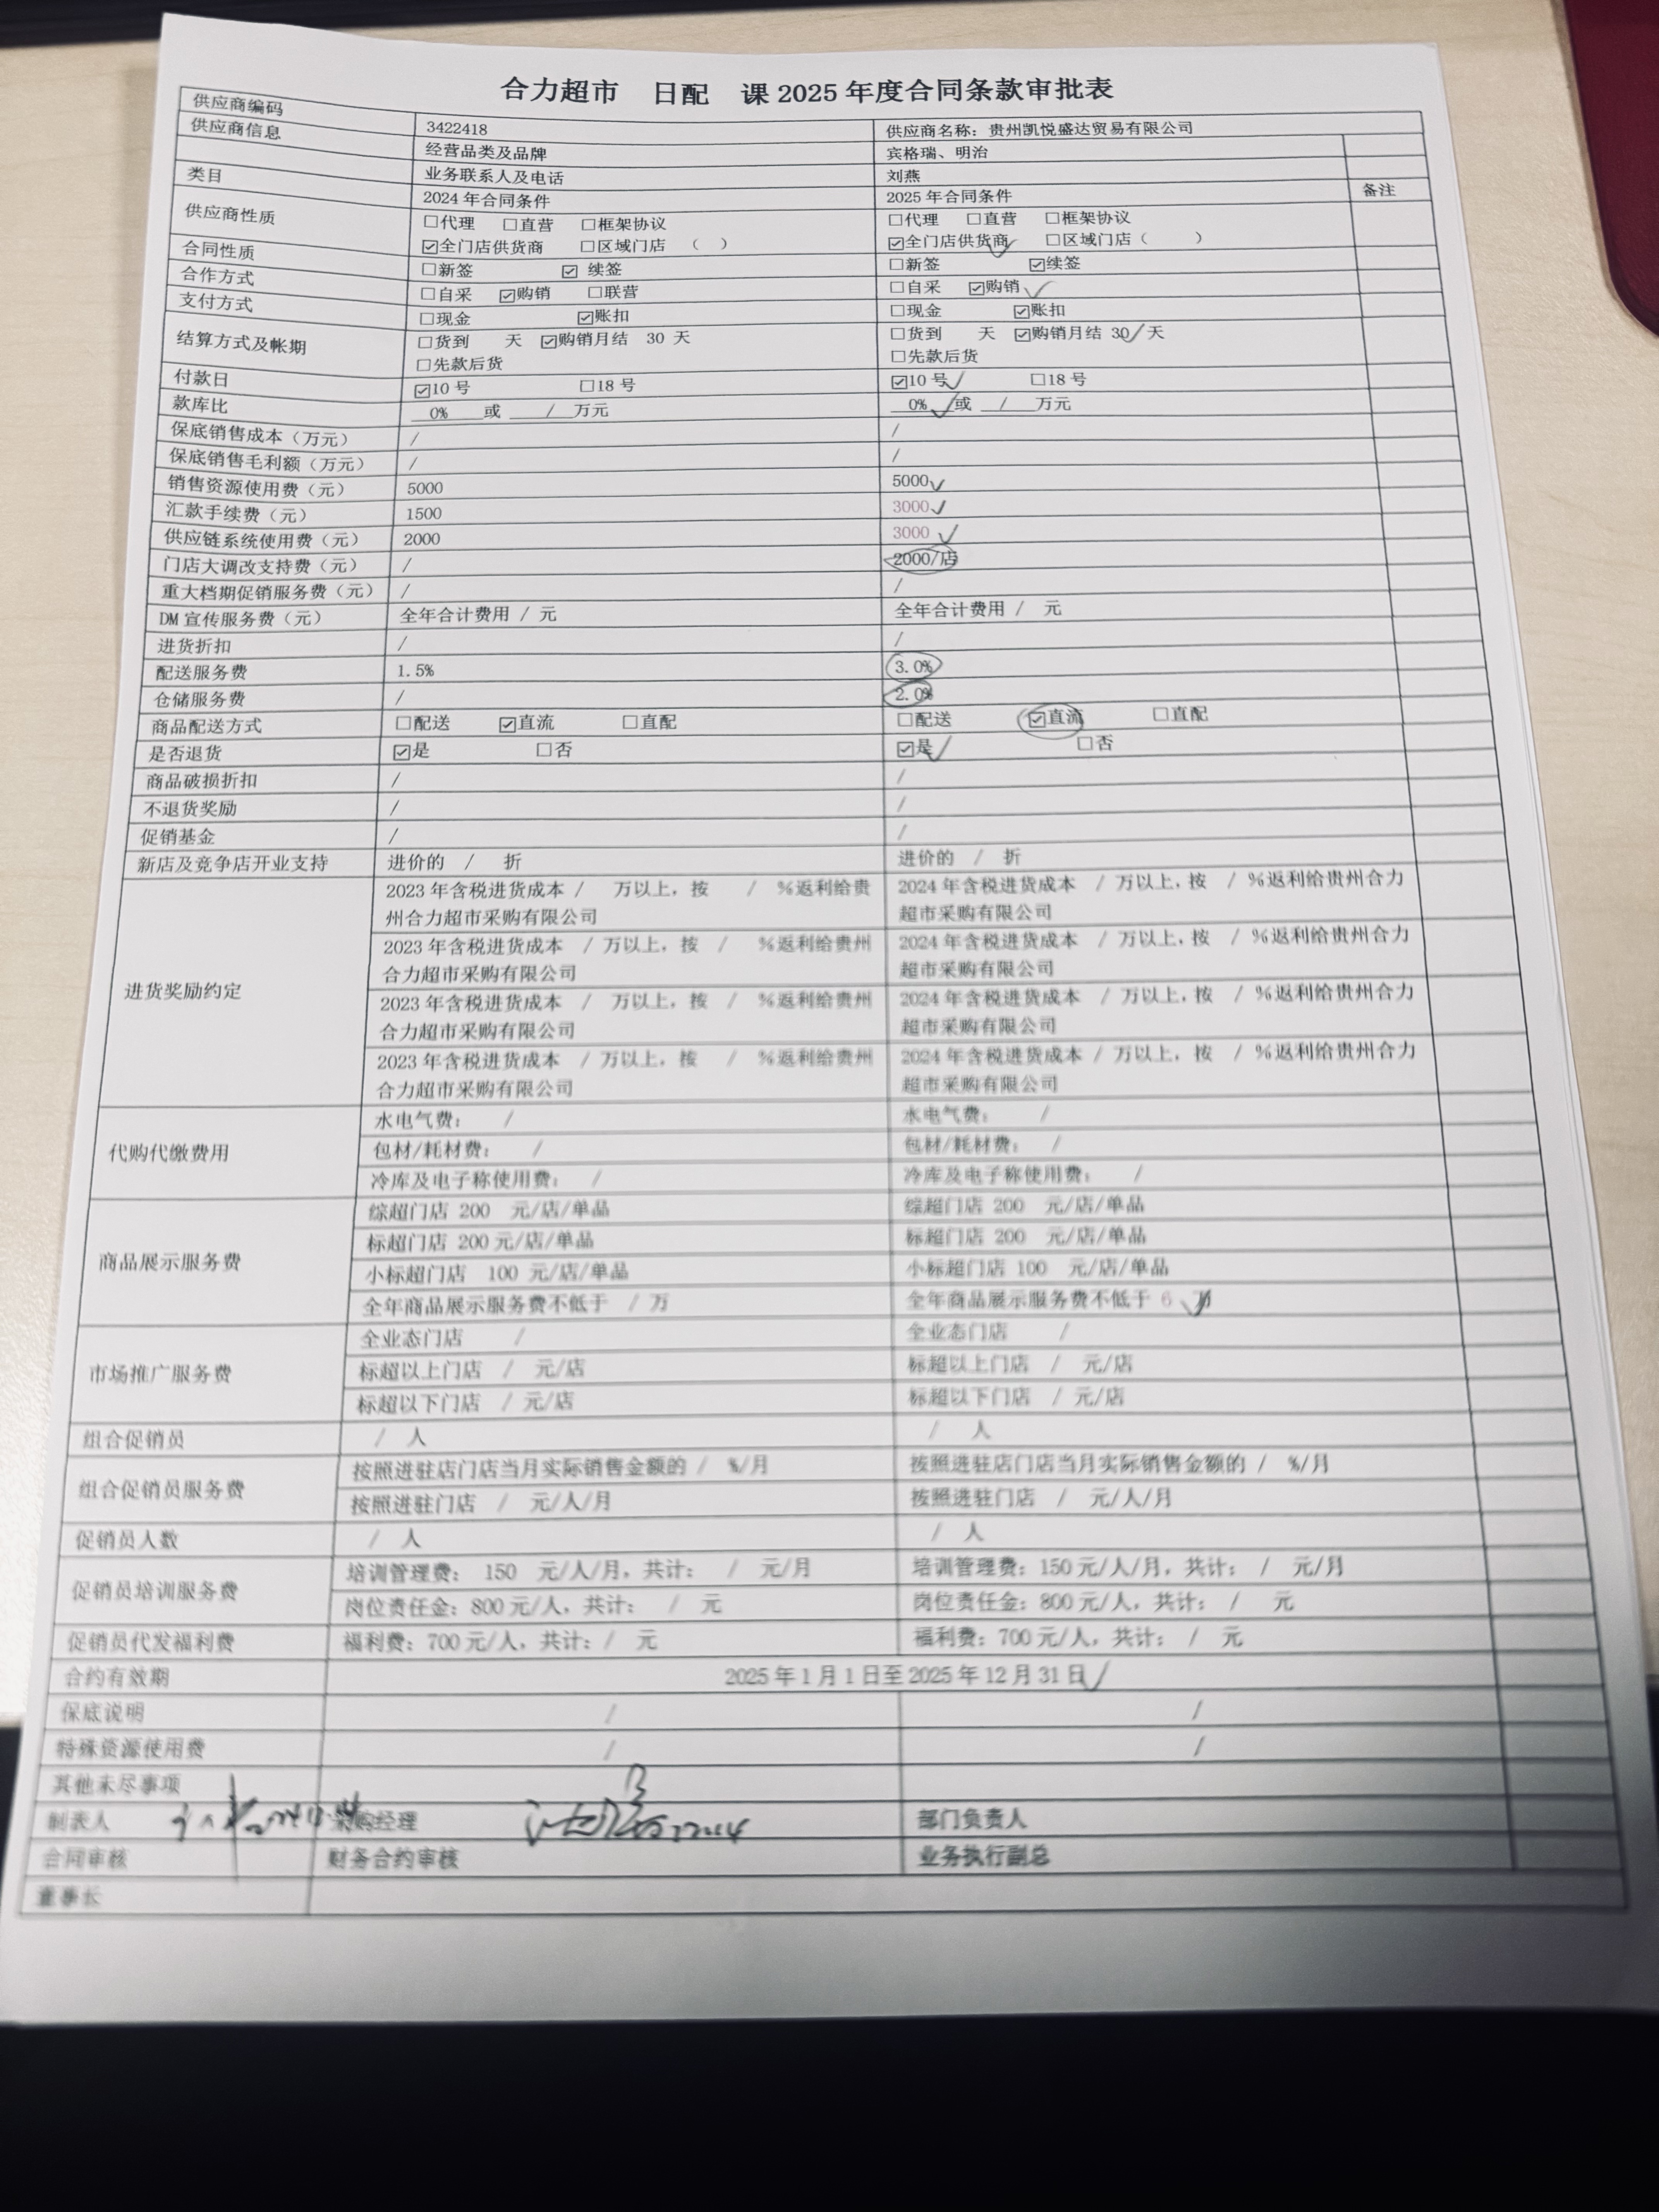 合力超市 日配 课 2025 年度合同条款审批表
供应商编码 3422418 供应商名称：贵州凯悦盛达贸易有限公司
供应商信息 经营品类及品牌 宾格瑞、明治
业务联系人及电话 刘燕
类目 2024 年合同条件 2025 年合同条件 备注
供应商性质 □代理 □直营 □框架协议 □代理 □直营 □框架协议
☑全门店供货商 □区域门店 （ ） ☑全门店供货商 □区域门店（ ）
合同性质 □新签 ☑ 续签 □新签 ☑续签
合作方式 □自采 ☑购销 □联营 □自采 ☑购销
支付方式 □现金 ☑账扣 □现金 ☑账扣
结算方式及帐期 □货到 天 ☑购销月结 30 天 □货到 天 ☑购销月结 30 天
□先款后货 □先款后货
付款日 ☑10 号 □18 号 ☑10 号 □18 号
款库比 0% 或 / 万元 0% 或 / 万元
保底销售成本（万元） / /
保底销售毛利额（万元） / /
销售资源使用费（元） 5000 5000
汇款手续费（元） 1500 3000
供应链系统使用费（元） 2000 3000
门店大调改支持费（元） / 2000/店
重大档期促销服务费（元） / /
DM 宣传服务费（元） 全年合计费用 / 元 全年合计费用 / 元
进货折扣 / /
配送服务费 1.5% 3.0%
仓储服务费 / 2.0%
商品配送方式 □配送 ☑直流 □直配 □配送 ☑直流 □直配
是否退货 ☑是 □否 ☑是 □否
商品破损折扣 / /
不退货奖励 / /
促销基金 / /
新店及竞争店开业支持 进价的 / 折 进价的 / 折
进货奖励约定 2023 年含税进货成本 / 万以上，按 / %返利给贵州合力超市采购有限公司 2024 年含税进货成本 / 万以上，按 / %返利给贵州合力超市采购有限公司
2023 年含税进货成本 / 万以上，按 / %返利给贵州合力超市采购有限公司 2024 年含税进货成本 / 万以上，按 / %返利给贵州合力超市采购有限公司
2023 年含税进货成本 / 万以上，按 / %返利给贵州合力超市采购有限公司 2024 年含税进货成本 / 万以上，按 / %返利给贵州合力超市采购有限公司
2023 年含税进货成本 / 万以上，按 / %返利给贵州合力超市采购有限公司 2024 年含税进货成本 / 万以上，按 / %返利给贵州合力超市采购有限公司
代购代缴费用 水电气费： / 水电气费： /
包材/耗材费： / 包材/耗材费： /
冷库及电子称使用费： / 冷库及电子称使用费： /
商品展示服务费 综超门店 200 元/店/单品 综超门店 200 元/店/单品
标超门店 200 元/店/单品 标超门店 200 元/店/单品
小标超门店 100 元/店/单品 小标超门店 100 元/店/单品
全年商品展示服务费不低于 / 万 全年商品展示服务费不低于 6 万
市场推广服务费 全业态门店 / 全业态门店 /
标超以上门店 / 元/店 标超以上门店 / 元/店
标超以下门店 / 元/店 标超以下门店 / 元/店
组合促销员 / 人 / 人
组合促销员服务费 按照进驻店门店当月实际销售金额的 / %/月 按照进驻店门店当月实际销售金额的 / %/月
按照进驻门店 / 元/人/月 按照进驻门店 / 元/人/月
促销员人数 / 人 / 人
促销员培训服务费 培训管理费： 150 元/人/月，共计： / 元/月 培训管理费：150 元/人/月，共计： / 元/月
岗位责任金：800 元/人，共计： / 元 岗位责任金：800 元/人，共计： / 元
促销员代发福利费 福利费：700 元/人，共计： / 元 福利费：700 元/人，共计： / 元
合约有效期 2025 年 1 月 1 日至 2025 年 12 月 31 日
保底说明 / /
特殊资源使用费 / /
其他未尽事项
制表人 采购经理 部门负责人
合同审核 财务合约审核 业务执行副总
董事长